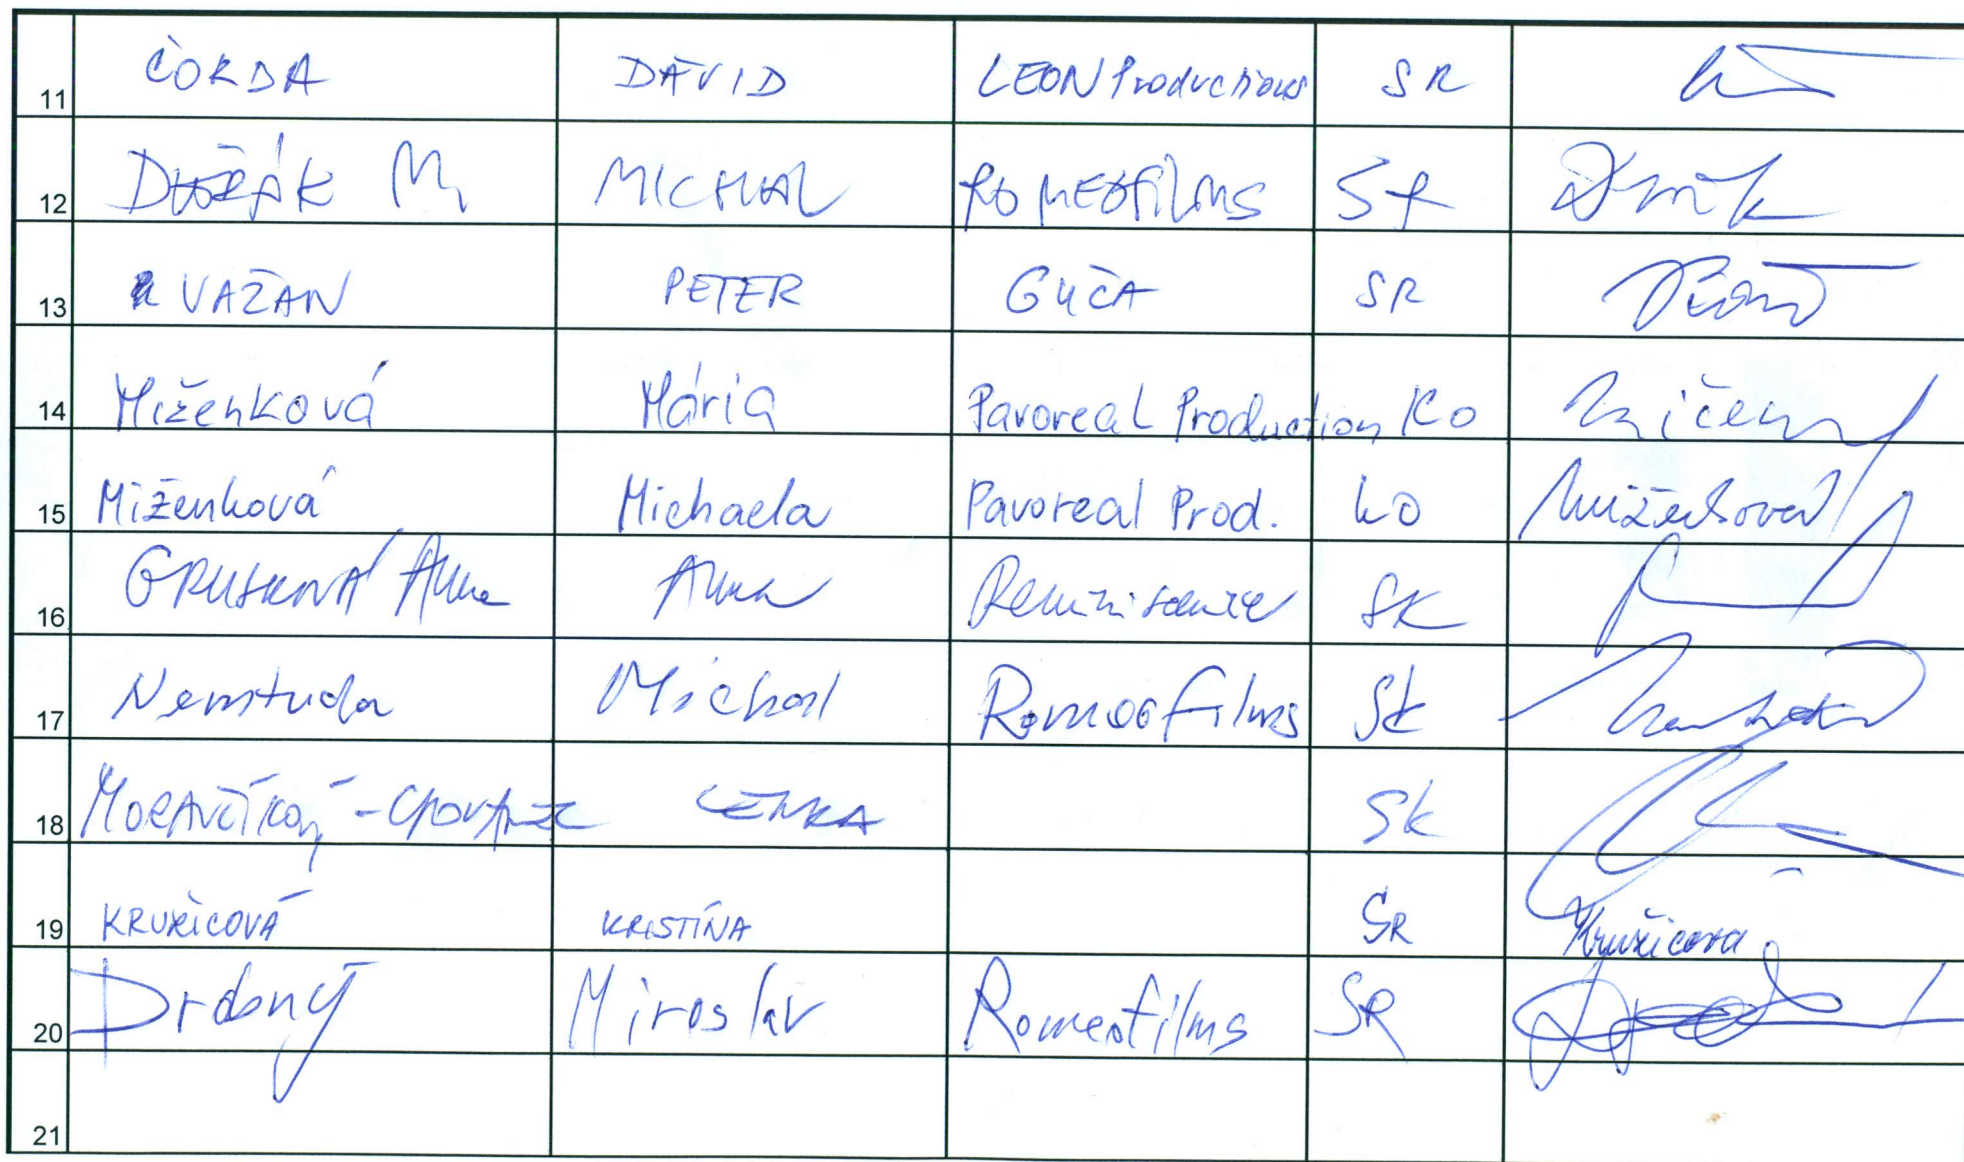 11 ČORBA DÁVID LEON Productions SR
12 DVOŘÁK M MICHAL ROMEOFILMS SR
13 VAŽAN PETER GUČA SR
14 Miženková Mária Pavoreal Production KO
15 Miženková Michaela Pavoreal Prod. KO Miženková
16 GRUSKOVÁ Anna Anna Reminiscencie SK
17 Nemstuda Michal Romeofilms SK
18 MORAVČÍKOVÁ - LENKA SK
19 KRUŽICOVÁ KRISTÍNA SR Kružicová
20 Drdoný Miroslav Romeofilms SR
21